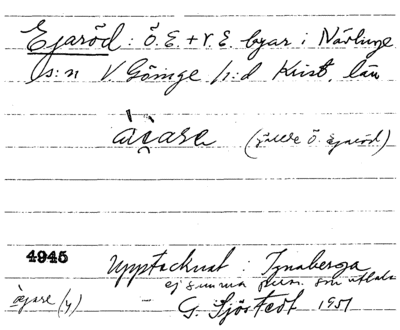 Ejaröd: Ö. E. + V. E. byar i Nävlinge
s:n V Göinge h:d Krist. län
äi̯ara (gäller Ö. Ejaröd)
4945 Upptecknat: Ignaberga
ej samma pers. som uttalar
äjare (y) - G. Sjöstedt 1951